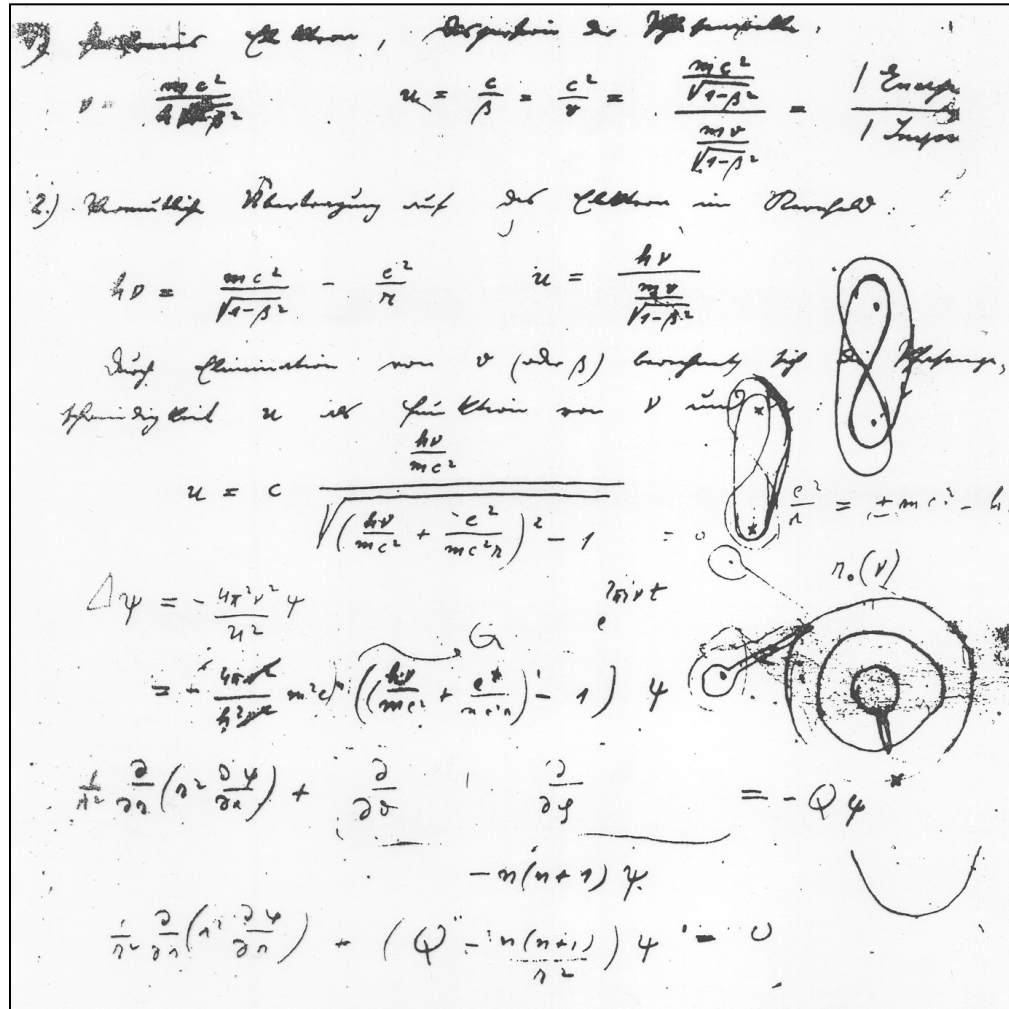 Elektron, Dispersion der Phasenwelle.
ν = mc² / h√1-β²    u = c/β = c²/v = (mc²/√1-β²) / (mv/√1-β²) = | Energ / | Impu
2.) Vermutliche Übertragung auf das Elektron im Kernfeld:
hν = mc²/√1-β² - e²/r    u = hν / (mv/√1-β²)
Durch Elimination von v (oder β) berechnet sich die Phasenge,
schwindigkeit u als Funktion von ν und
u = c (hν/mc²) / √(hν/mc² + e²/mc²r)² - 1    = 0    e²/r = ± mc² - h
r₀(ν)
Δψ = - 4π²ν²/u² ψ    e^2πiνt
G
= - 4π²/h² m²c² ((hν/mc² + e²/mc²r)² - 1) ψ
1/r² ∂/∂r (r² ∂ψ/∂r) + ∂/∂ϑ    ∂/∂φ    = - Qψ
- n(n+1) ψ
1/r² ∂/∂r (r² ∂ψ/∂r) + (Q - n(n+1)/r²) ψ = 0